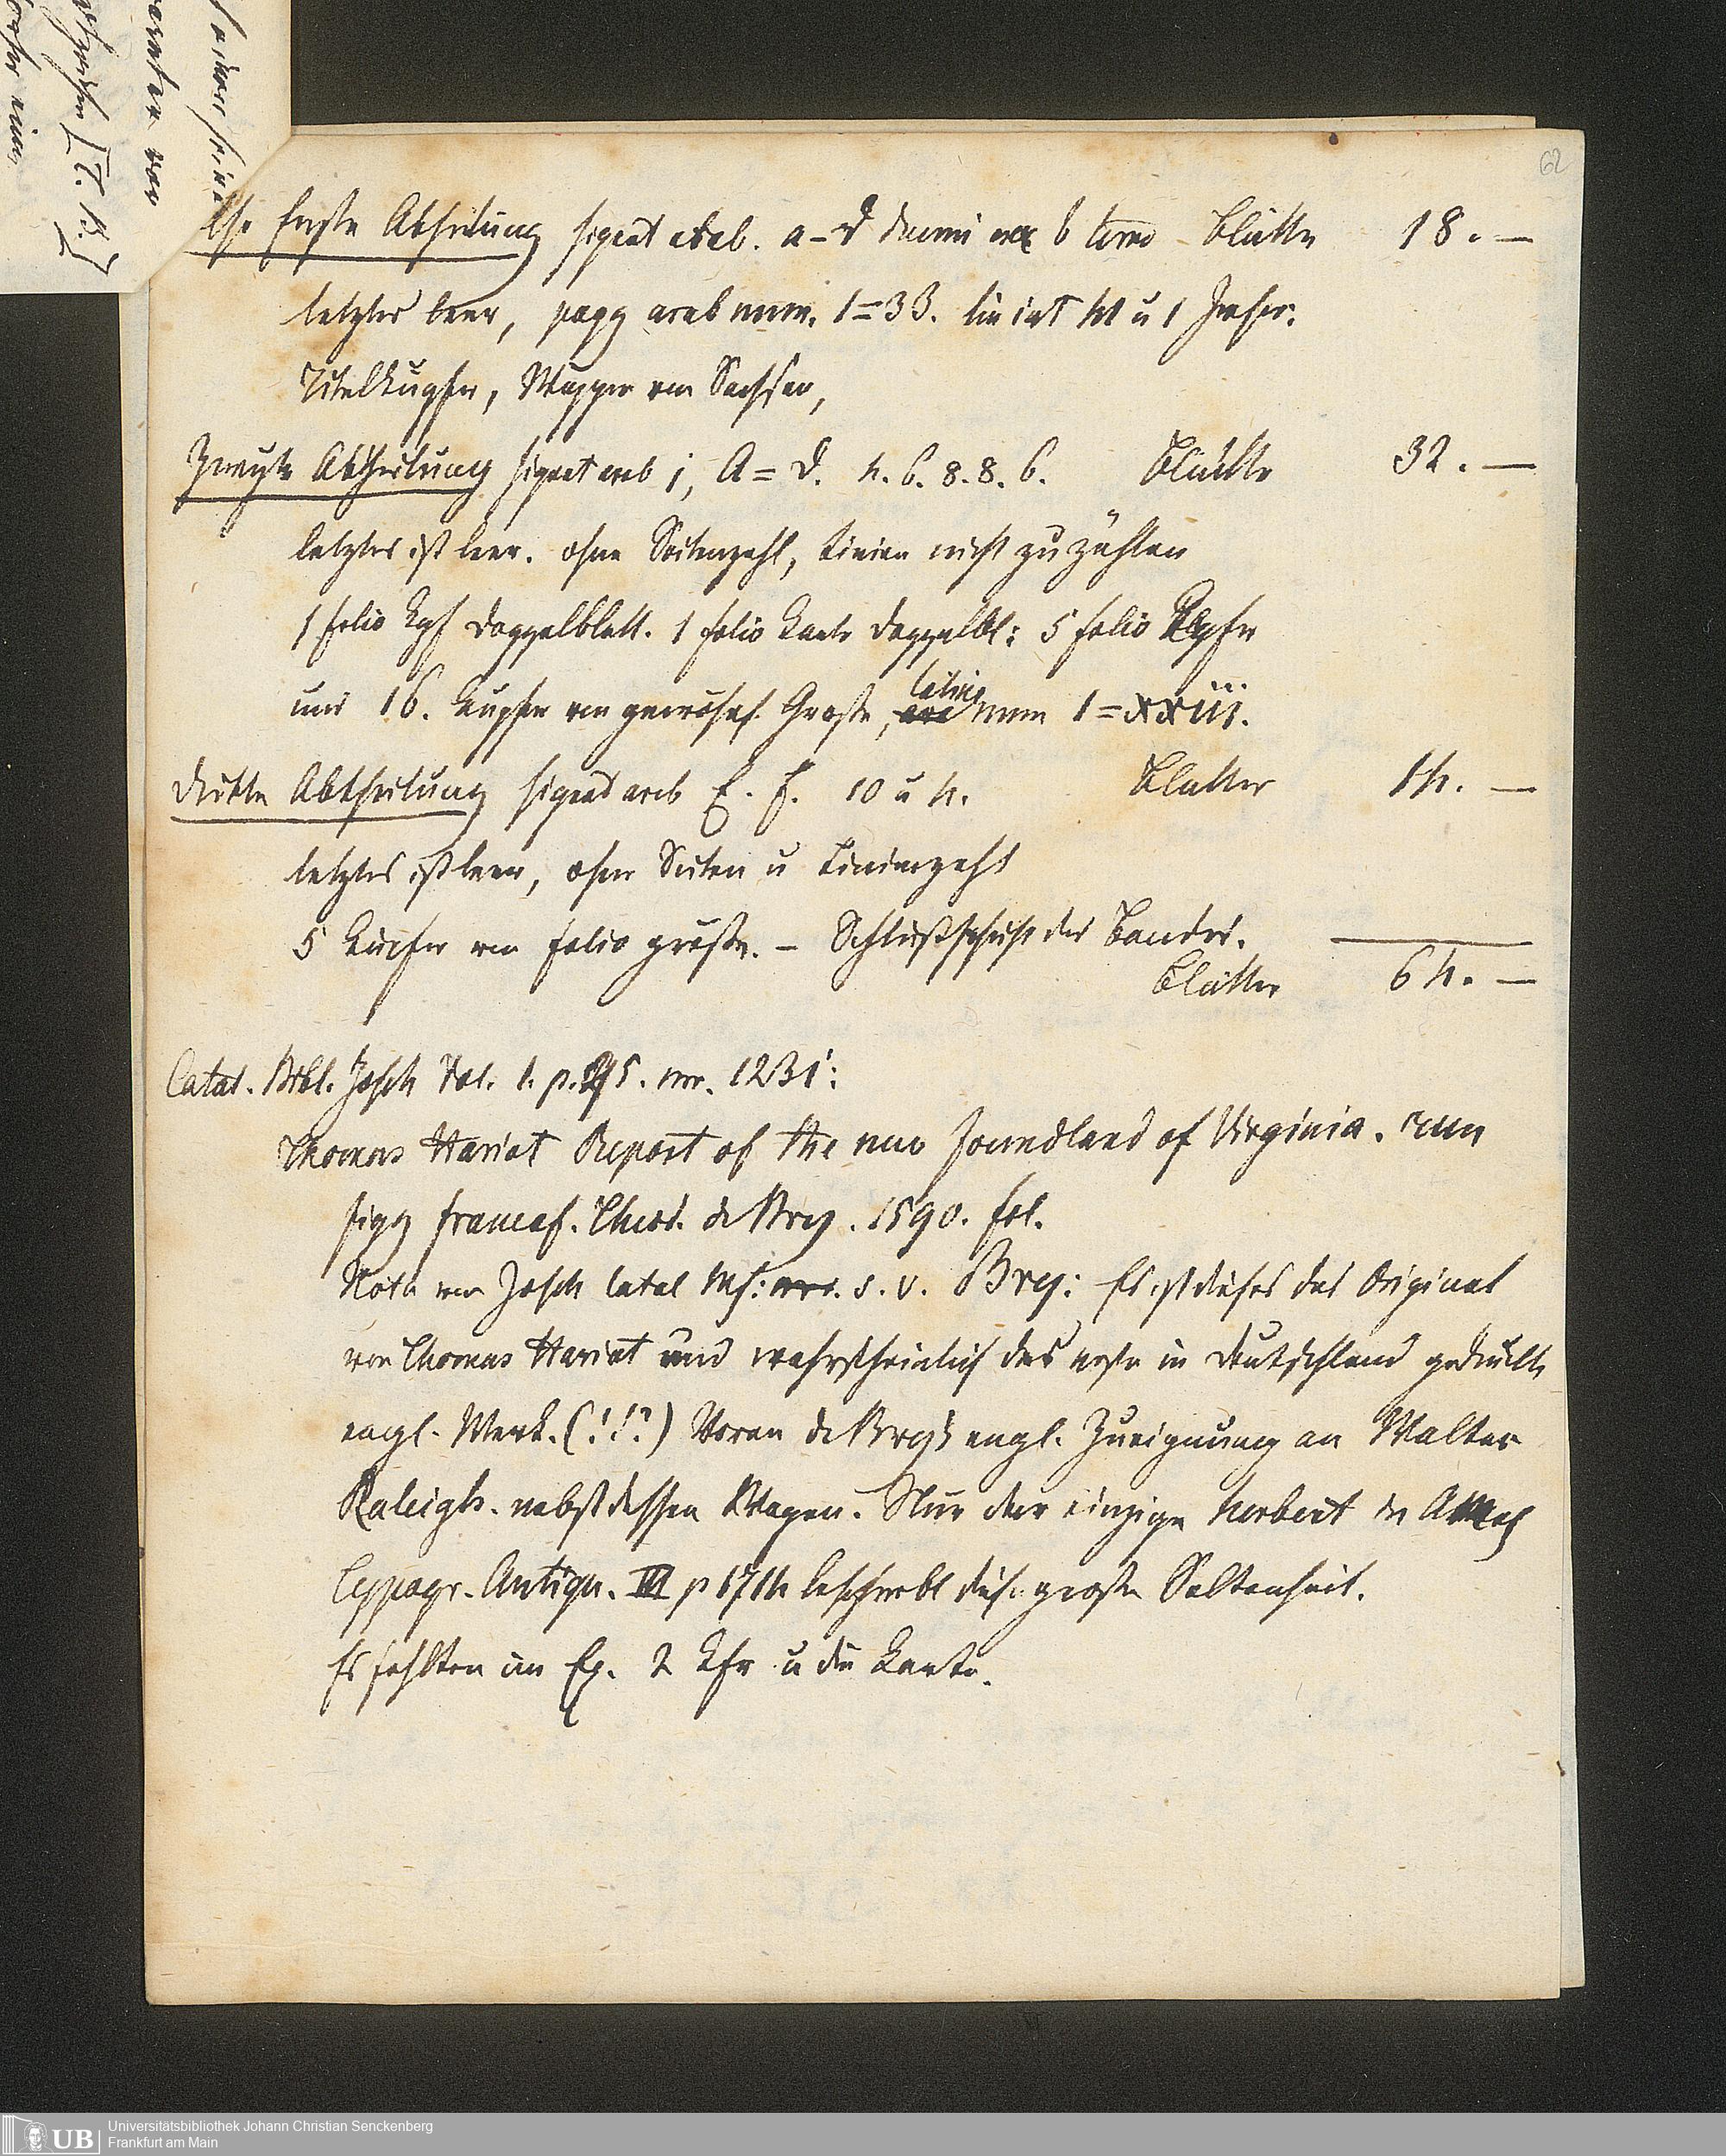 62
Erste Abtheilung signat arab. a–d duerni b terno Blätter 18.—
letztes leer, pagg arab num. 1=33. u 1
Titelkupfer, Wappen von Sachsen,
Zweyte Abtheilung signat arab j, A=D. 4. 6. 8. 8. 6. Blätter 32.—
letztes ist leer. ohne Seitenzahl, Linien nicht zu zählen
1 folio Kpf Doppelblatt. 1 folio Karte Doppelbl: 5 folio Kpfr
und 16. Kupfer von Große, latin num 1=xxiii.
Dritte Abtheilung signat arab E. F. 10 u 4. Blätter 14.—
letztes ist leer, ohne Seiten u Linienzahl
5 Kupfer von folio größe. – Schlußschrift des Bandes.
Blätter 64.—
Catal. Bibl. Josch Vol. 1. p. 295. nr. 1231:
Thomas Hariot Report of the new foundland of Virginia. cum
figg francof. Theod. de Bry. 1590. fol.
Nota von Josch Catal Ms: s. v. Bry: Es ist dieses das Original
von Thomas Hariot und wahrscheinlich das erste in Deutschland gedruckte
engl. Werk. (!!?) Voran de Bry's engl. Zueignung an Walter
Raleigh. nebst dessen Wapen. Nur der einzige Herbert in Ames
Typogr. Antiqu. III p 1714 beschreibt diese große Seltenheit.
Es fehlten im Ex. 2 Kfr u die Karte.
UB
Universitätsbibliothek Johann Christian Senckenberg
Frankfurt am Main